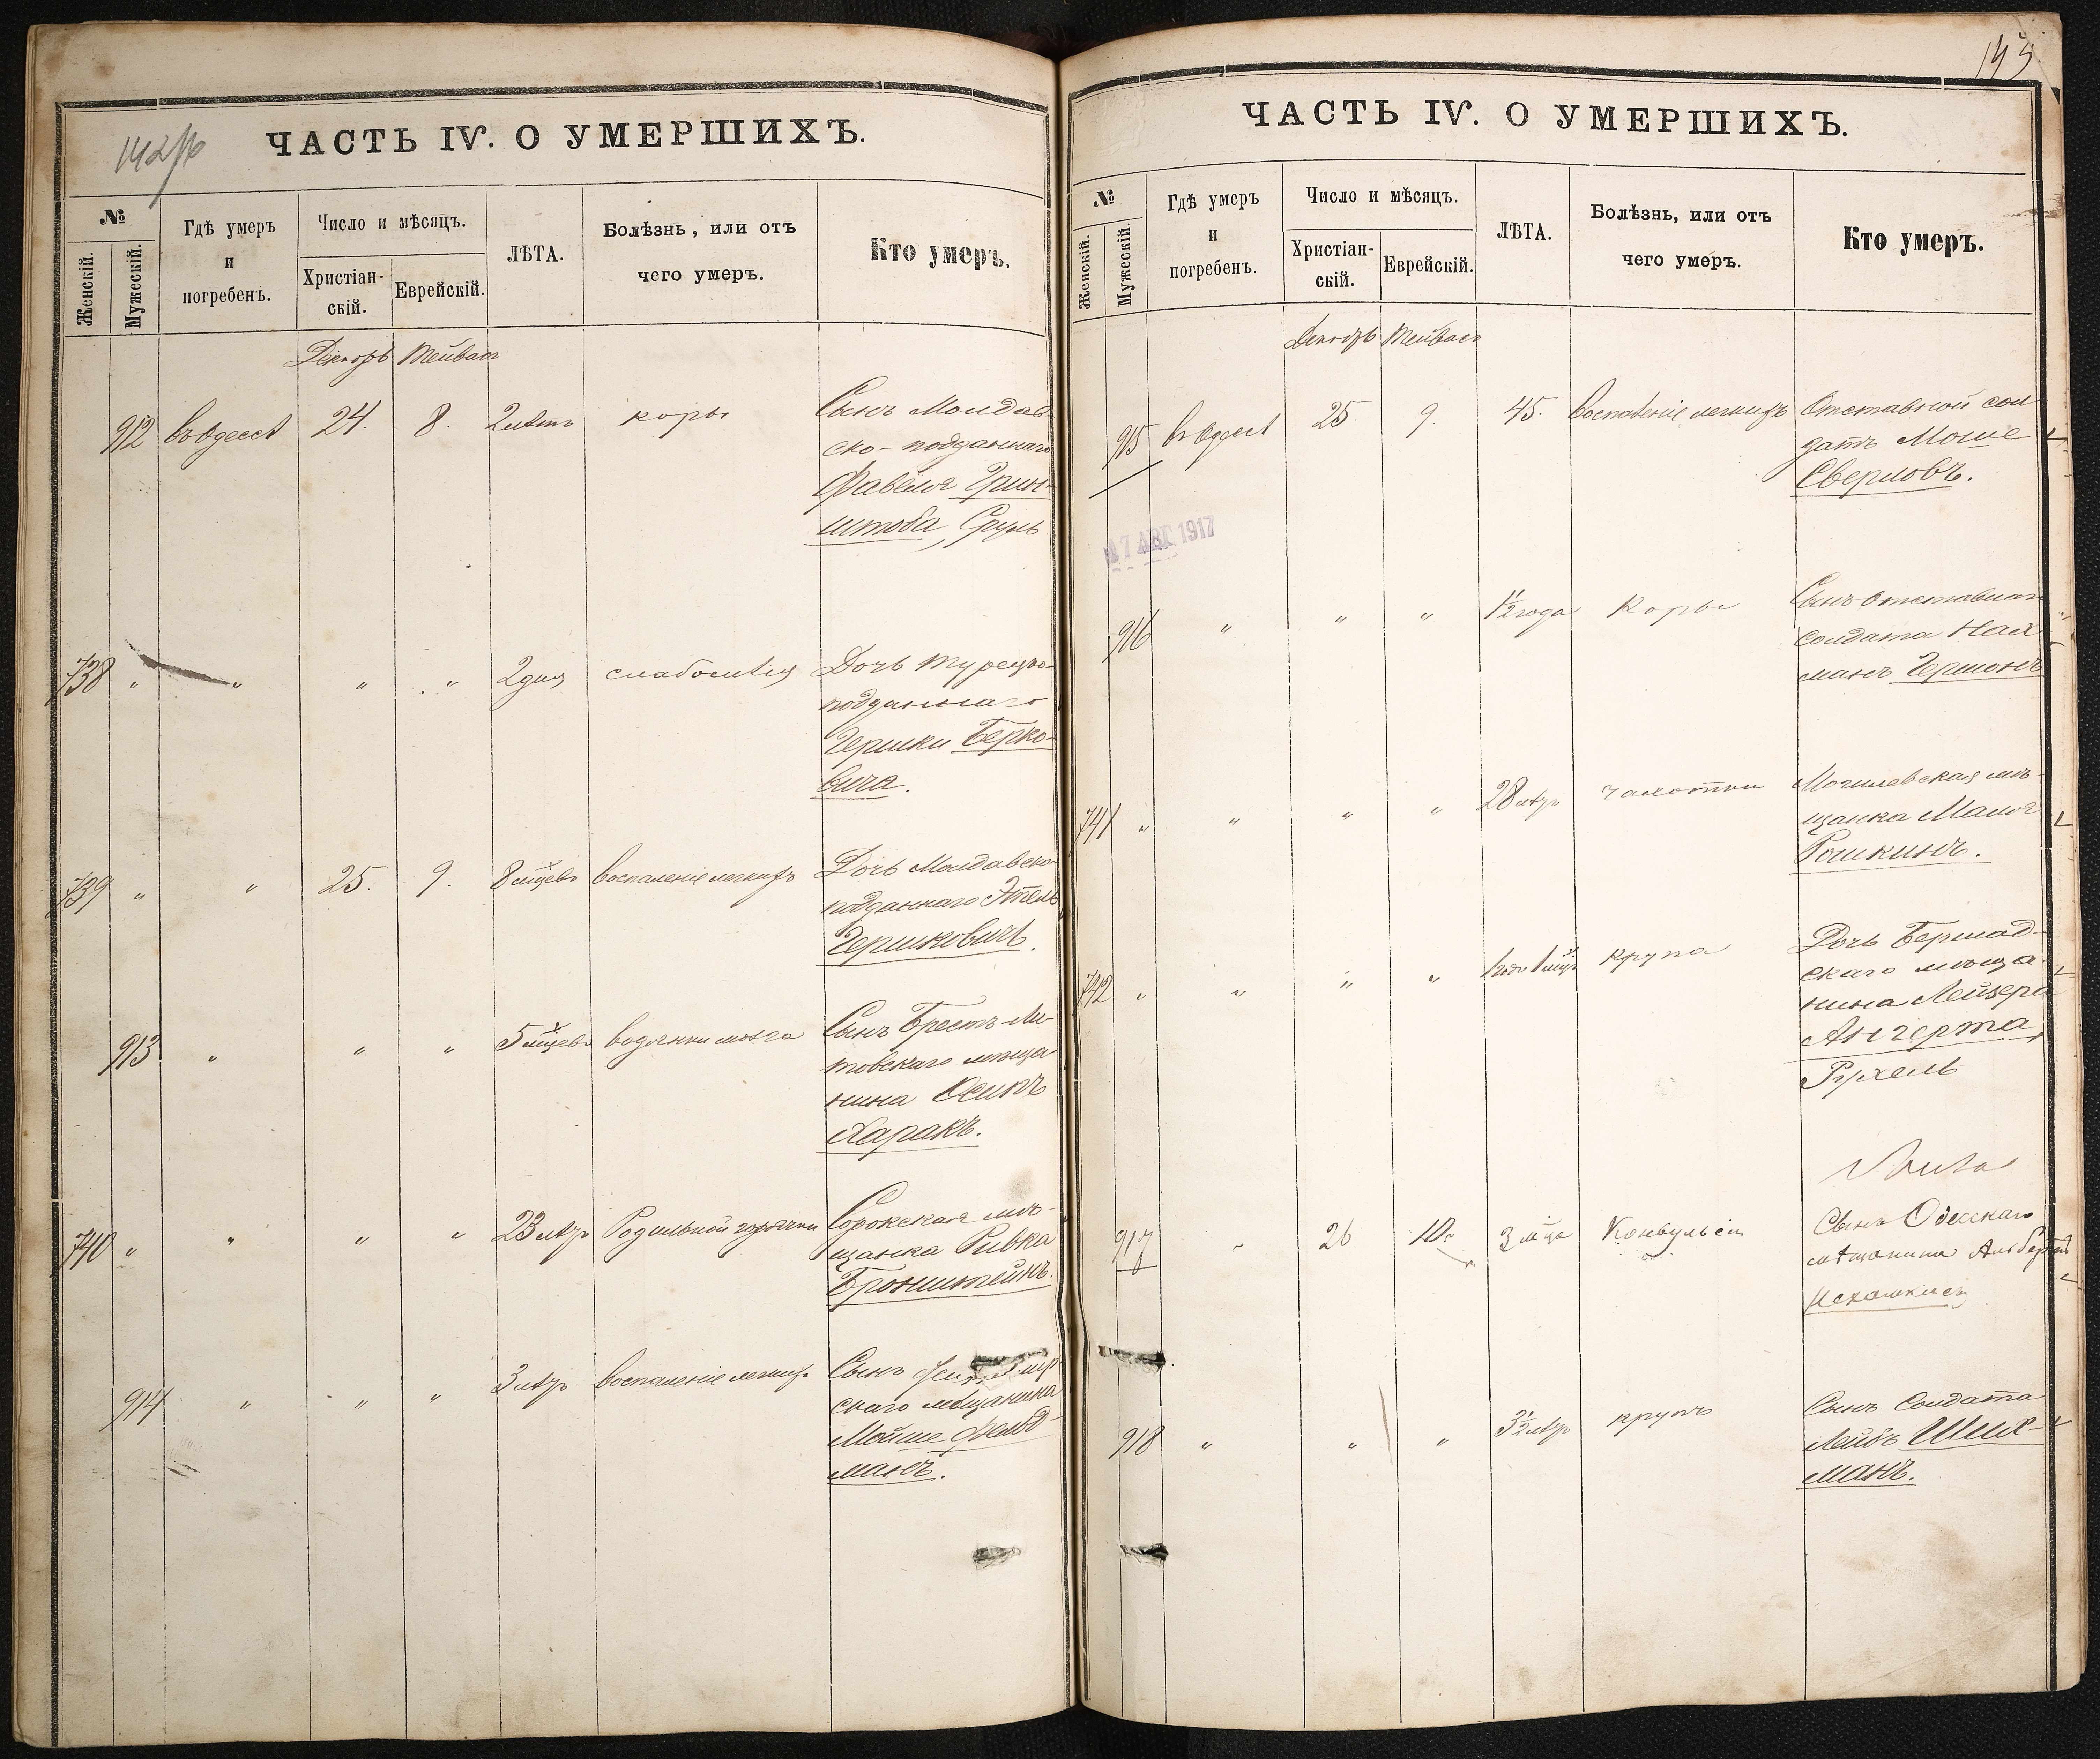 142/об
ЧАСТЬ IV. О УМЕРШИХЪ.
№
Женскій.
Мужескій.
Гдѣ умеръ
и
погребенъ.
Число и мѣсяцъ.
Христіан-
скій.
Еврейскій.
ЛѢТА.
Болѣзнь, или отъ
чего умеръ.
Кто умеръ.
Декабрь Тейвасъ
912 въ Одессѣ 24. 8. 2 лѣтъ коры Сынъ Молдав-
ско-подданнаго
Фавеля Грин-
штоба, Сруль
738 " " " " 2 дня слабостью Дочь Турецко-
подданнаго
Гершки Берко-
вича.
739 " " 25. 9. 8 мѣсяцевъ воспаленіе легкихъ Дочь Молдавско-
подданнаго Этель
Гершковичъ.
913 " " " 5 мѣсяцевъ водянки мозга Сынъ Брестъ-Ли-
товскаго мѣща-
нина Осипъ
Харакъ.
740 " " " " 23 лѣтъ Родильной горячки Сорокская мѣ-
щанка Ривка
Бронштейнъ.
914 " " " 3 лѣтъ воспаленіе легкихъ Сынъ
скаго мѣщанина
Мойше Фельд-
манъ.
143
ЧАСТЬ IV. О УМЕРШИХЪ.
№
Женскій.
Мужескій.
Гдѣ умеръ
и
погребенъ.
Число и мѣсяцъ.
Христіан-
скій.
Еврейскій.
ЛѢТА.
Болѣзнь, или отъ
чего умеръ.
Кто умеръ.
Декабрь Тейвасъ
915 въ Одессѣ 25. 9. 45. Воспаленіе легкихъ Отставной сол-
датъ Моше
Сверловъ.
17 АВГ 1917
916 " " " 1½ года Коры Сынъ отставнаго
солдата Нах-
манъ Гершонъ
741 " " " " 28 лѣтъ чахотки Могилевская мѣ-
щанка Маля
Рошкинъ.
742 " " " " 1 годъ 1 мѣсяцъ крупа Дочь Бершад-
скаго мѣща-
нина Лейзера
Ангерта,
Рухель
917 " 26 10. 3 м-ца Конвульсіи Сынъ Одесскаго
мѣщанина Альбертъ
918 " " " 3½ лѣтъ крупъ Сынъ Солдата
Лейбъ Шлих-
манъ.